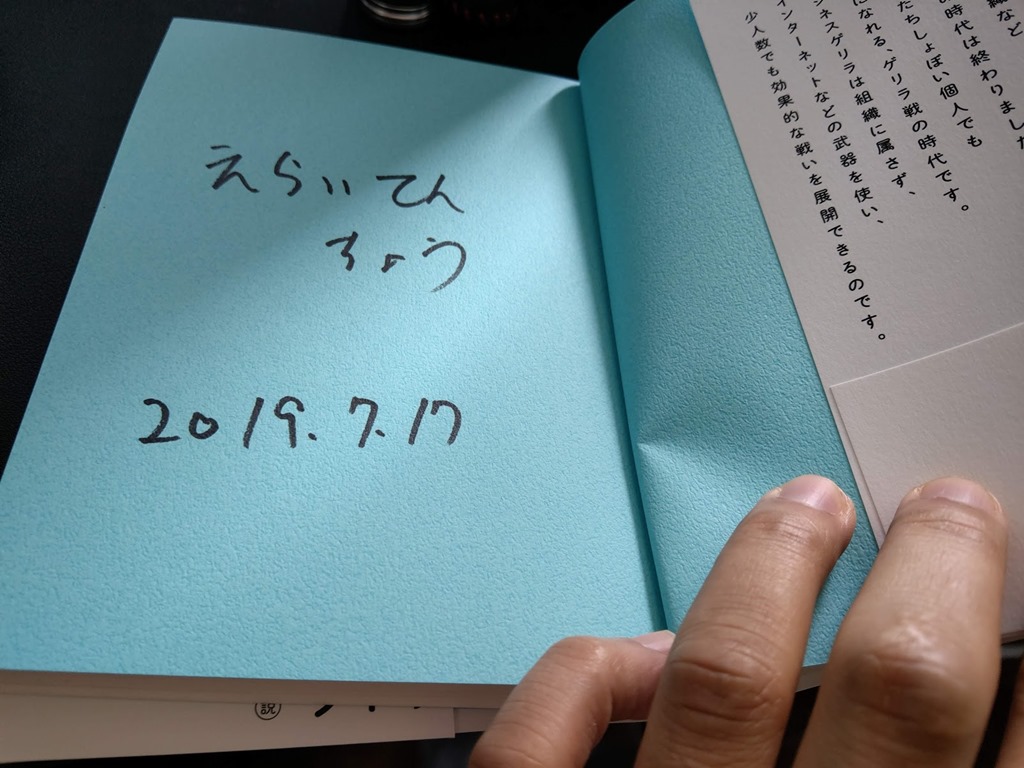 えらいてん
ちょう
2019.7.17
織など
の時代は終わりました
たちしょぼい個人でも
になれる、ゲリラ戦の時代です。
ジネスゲリラは組織に属さず、
インターネットなどの武器を使い、
少人数でも効果的な戦いを展開できるのです。
説